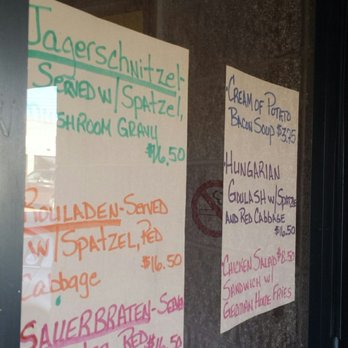 Jagerschnitzel-
Served w/Spatzel,
Mushroom Gravy
$16.50
Rouladen-Served
w/Spatzel, Red
Cabbage
$16.50
Sauerbraten-Served
Red $16.50
Cream of Potato
Bacon Soup $3.95
Hungarian
Goulash w/Spatzel
and Red Cabbage
$16.50
Chicken Salad $8.50
Sandwich w/
German Home Fries